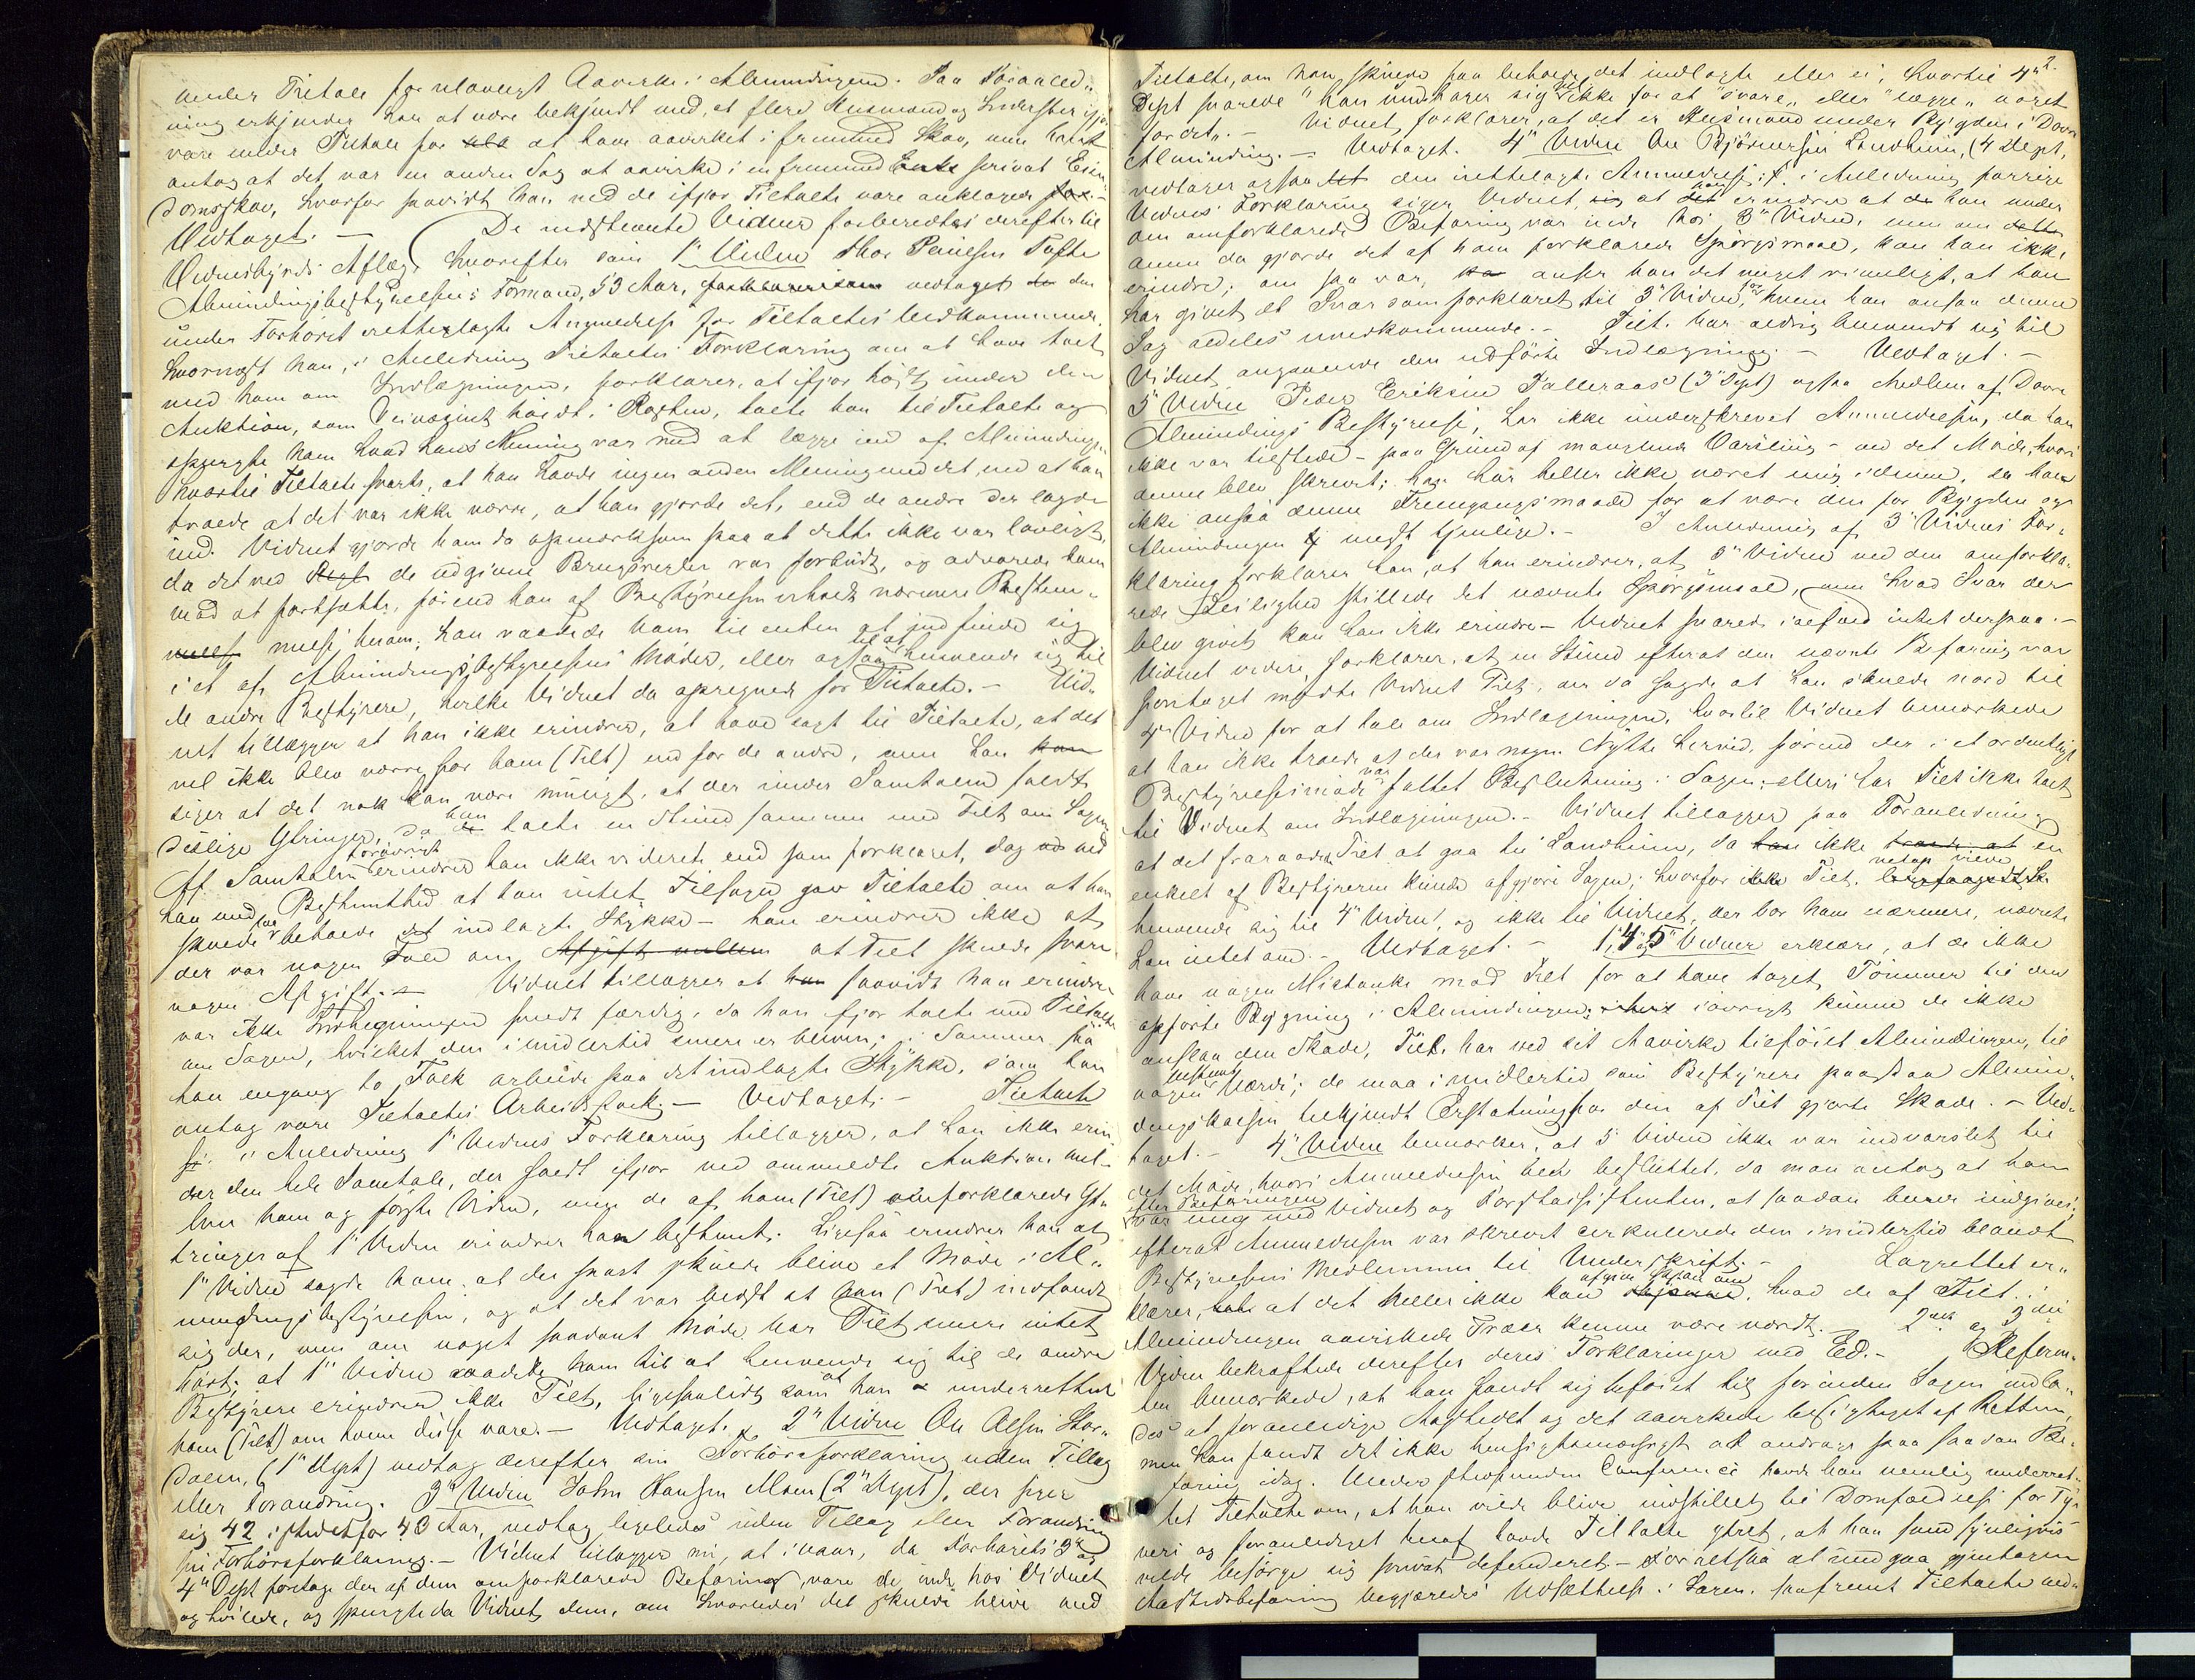 under Tiltale for ulovligt Aavirke i Almindingen. Paa Foranled-
ning erkjender han at være bekjendt med, at flere Husmænd og Inderster ifjor
vare under Tiltale for at have aavirket i fremmed Skov, men han
antog at det var en anden Sag at aavirke i en fremmed privat Eien-
domsskov, hvorfor saavidt han ved de ifjor Tiltalte vare anklagede
Vedtaget. — De indstevnte Vidner forberedtes derefter til
Vidnesbyrds Aflæg, hvorefter som 1ste Vidne Thor Paulsen Tofte
Almindingsbestyrelsens Formand, 53 Aar, vedtaget den
under Forhøret irettelagte Anmeldelse for Tiltaltes Vedkommende,
hvornæst han, i Anledning Tiltaltes Forklaring om at have talt
med ham om Indlægningen, forklarer, at ifjor høst under den
Auktion, som holdt i Rosten, talte han til Tiltalte og
spurgte ham hvad hans Mening var med at lægge ind af Almindingen
hvortil Tiltalte svarte, at han havde ingen anden Mening med det, end at han
troede at det var ikke værre, at han gjorde det, end de andre der lagde
ind. Vidnet gjorde ham da opmærksom paa at dette ikke var lovligt,
da det ved de udgivne Brugsregler var forbudt, og advarede ham
mod at fortsætte, førend han af Bestyrelsen erholdt nærmere Bestem-
melse herom; han raadede ham til enten at indfinde sig
i et af Almindingsbestyrelsens Møder, eller ogsaa til at henvende sig til
de andre Bestyrere, hvilke Vidnet da opregnede for Tiltalte. — Vid-
net tillægger at han ikke erindrer, at have sagt til Tiltalte, at det
vel ikke blev værre for ham (Tilt) end for de andre, men han
siger at det nok kan være muligt, at der under Samtalen faldt
deslige Ytringer, da han talte en Stund sammen med Tilt om Sagen
Af Samtalen forøvrigt erindrer han ikke videre end som forklaret, dog ved
han med Bestemthed at han intet Tilsagn gav Tiltalte om at han
skulde faa beholde det indlagte Stykke — han erindrer ikke at
der var nogen Tale om at Tilt skulde svare
nogen Afgift. — Vidnet tillægger at saavidt han erindrer
var ikke Indhegningen fuldt færdig, da han ifjor talte med Tiltalte
om Sagen, hvilket den imidlertid senere er bleven; i Sommer saa
han engang to Folk arbeide paa det indlagte Stykke, som han
antog vare Tiltaltes Arbeidsfolk. — Vedtaget. — Tiltalte
i Anledning 1ste Vidnes Forklaring tillægger, at han ikke erin-
drer den hele Samtale, der faldt ifjor ved ommeldte Auktion mel-
lem ham og første Vidne, men de af ham (Tilt) omforklarede Yt-
tringer af 1ste Vidne erindrer han bestemt. Ligesaa erindrer han at
1ste Vidne sagde ham, at der snart skulde blive et Møde i Al-
mindingsbestyrelsen, og at det var bedst at han (Tilt) indfandt
sig der, men om noget saadant Møde har Tilt senere intet
hørt; at 1ste Vidne raadede ham til at henvende sig til de andre
Bestyrere erindrer ikke Tilt, ligesaalidt som at han underrettede
ham (Tilt) om hvem disse vare. — Vedtaget. 2det Vidne Ole Olsen Stor-
dalen, (1ste Dept) vedtog derefter sin Forhørsforklaring uden Tillæg
eller Forandring. 3die Vidne John Hansen Moen (2den Dept), der siger
sig 42 istedetfor 40 Aar, vedtog ligeledes uden Tillæg eller Forandring
sin Forhørsforklaring. — Vidnet tillægger nu, at ivaar, da Forhørets 3die og
4de Dept foretoge den af dem omforklarede Befaring, vare de inde hos Vidnet
og hvilede, og spurgte da Vidnet dem, om hvorledes det skulde blive med
Tiltalte, om han skulde faa beholde det indlagte eller ei, hvortil 4de
Dept svarede "han undtager sig vel ikke for at "svare" eller "lægge" noget
for det". — Vidnet forklarer, at det er Husmænd under Bygden i Dovre
Alminding. — Vedtaget. 4de Vidne Ole Bjørnersen Landheim, (4 Dept,
vedtager ogsaa den irettelagte Anmeldelse; i Anledning forrige
Vidnes Forklaring siger Vidnet, at han erindrer at han under
den omforklarede Befaring var inde hos 3die Vidne, men om
denne da gjorde det af ham forklarede Spørgsmaal, kan han ikke
erindre; om saa var, anser han det meget rimeligt, at han
har givet et Svar som forklaret til 3die Vidne, hvem han ansaa denne
Sag aldeles uvedkommende. — Tilt. har aldrig henvendt sig til
Vidnet angaaende den udførte Indlægning. — Vedtaget. —
5te Vidne Peder Eriksen Talleraas (3die Dept) ogsaa Medlem af Dovre
Almindings Bestyrelse, har ikke underskrevet Anmeldelsen, da han
ikke var tilstede — paa Grund af manglende Varsling — ved det Møde, hvori
denne blev skrevet; han har heller ikke været enig i denne, da han
ikke ansaa denne Fremgangsmaade for at være den for Bygden og
Almindingen mest tjenlige. — I Anledning af 3die Vidnes For-
klaring forklarer han, at han erindrer, at 3die Vidne ved den omforkla-
rede Leilighed stillede det nævnte Spørgsmaal, men hvad Svar der
blev givet kan han ikke erindre — Vidnet svarede ialfald intet derpaa. —
Vidnet videre forklarer, at en Stund efterat den nævnte Befaring var
foretaget mødte Vidnet Tilt, der da sagde at han skulde nord til
4de Vidne for at tale om Indlægningen, hvortil Vidnet bemærkede
at han ikke troede at der var nogen Nytte herved, førend der i et ordentligt
Bestyrelsesmøde var fattet Beslutning i Sagen; ellers har Tilt ikke talt
til Vidnet om Indlægningen. — Vidnet tillægger paa Foranledning
at det fraraadede Tilt at gaa til Landheim, da ikke en
enkelt af Bestyrerne kunde afgjøre Sagen; hvorfor Tilt. netop vilde
henvende sig til 4de Vidne, og ikke til Vidnet, der bor ham nærmere, nævnte
han intet om. — Vedtaget. — 1ste, 4de og 5te Vidner erklære, at de ikke
have nogen Mistanke mod Tilt for at have taget Tømmer til den
opførte Bygning i Almindingen; iøvrigt kunne de ikke
anslaa den Skade, Tilt. har ved sit Aavirke tilføiet Almindingen, til
nogen bestemt Værdi; de maa imidlertid som Bestyrere paastaa Almin-
dingskassen tilkjendt Erstatning for den af Tilt gjorte Skade. — Ved-
taget. — 4de Vidne bemærker, at 5te Vidne ikke var indvarslet til
det Møde, hvori Anmeldelsen blev besluttet, da man antog at han
efter Befaringen
var enig med Vidnet og Forstassistenten, at saadan burde indgives;
efterat Anmeldelsen var skrevet cirkulerede den imidlertid blandt
Bestyrelsens Medlemmer til Underskrift. — Lagrettet er-
klærer, at det heller ikke kan afgive Skjøn om, hvad de af Tilt. i
Almindingen aavirkede Træer kunne være værdt. — 2det og 3die
Vidne bekræftede derefter deres Forklaringer med Ed. — Referen-
ten bemærkede, at han fandt sig beføiet til forinden Sagen indla-
des at foranledige Aastedet og det aavirkede besigtiget af Retten,
men han fandt det ikke hensigtsmæssigt at andrage paa saadan Be-
faring idag. Under stedfunden Conference havde han nemlig underret-
tet Tiltalte om, at han vilde blive indstillet til Domfældelse for Ty-
veri og foranlediget heraf havde Tiltalte ytret, at han sandsynligvis
vilde besørge sig privat defenderet — For altsaa at undgaa gjentagen
Aastedsbefaring begjæredes Udsættelse i Sagen, saafremt Tiltalte ved-